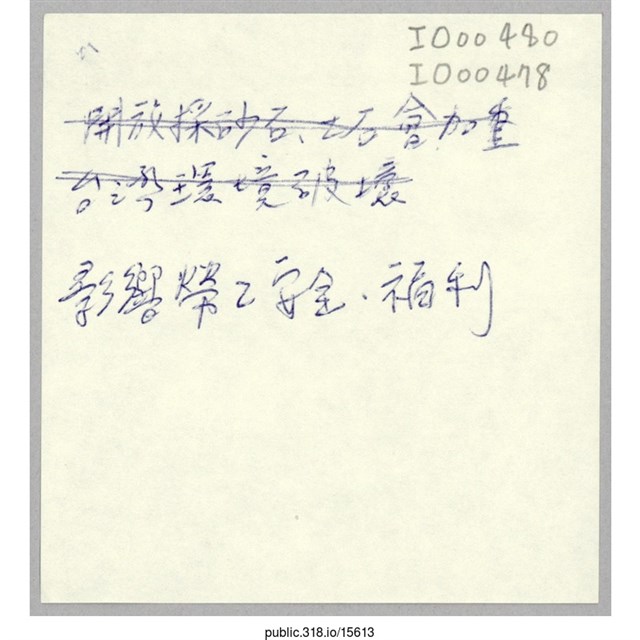 IO00480
IO00478
開放採砂石、土石會加重
台灣環境破壞
影響勞工安全、福利
public.318.io/15613